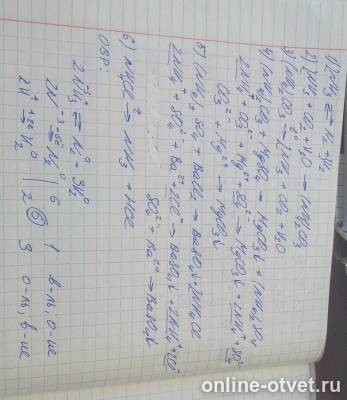 1) 2NH₃ ⇄ N₂ + 3H₂
2) 2NH₃ + CO₂ + H₂O → (NH₄)₂CO₃
3) (NH₄)₂CO₃ → 2NH₃ + CO₂ + H₂O
4) (NH₄)₂CO₃ + MgSO₄ → MgCO₃↓ + (NH₄)₂SO₄
2NH₄⁺ + CO₃²⁻ + Mg²⁺ + SO₄²⁻ → MgCO₃↓ + 2NH₄⁺ + SO₄²⁻
CO₃²⁻ + Mg²⁺ → MgCO₃↓
5) (NH₄)₂SO₄ + BaCl₂ → BaSO₄↓ + 2NH₄Cl
2NH₄⁺ + SO₄²⁻ + Ba²⁺ + 2Cl⁻ → BaSO₄↓ + 2NH₄⁺ + 2Cl⁻
SO₄²⁻ + Ba²⁺ → BaSO₄↓
6) NH₄Cl → NH₃ + HCl
ОВР:
2NH₃ ⇄ N₂ + 3H₂
2N⁻³ -6e → N₂⁰ | 6 | 1 в-ль, о-ие
2H⁺ +2e → H₂⁰ | 2 (6) 3 о-ль, в-ие
online-otvet.ru